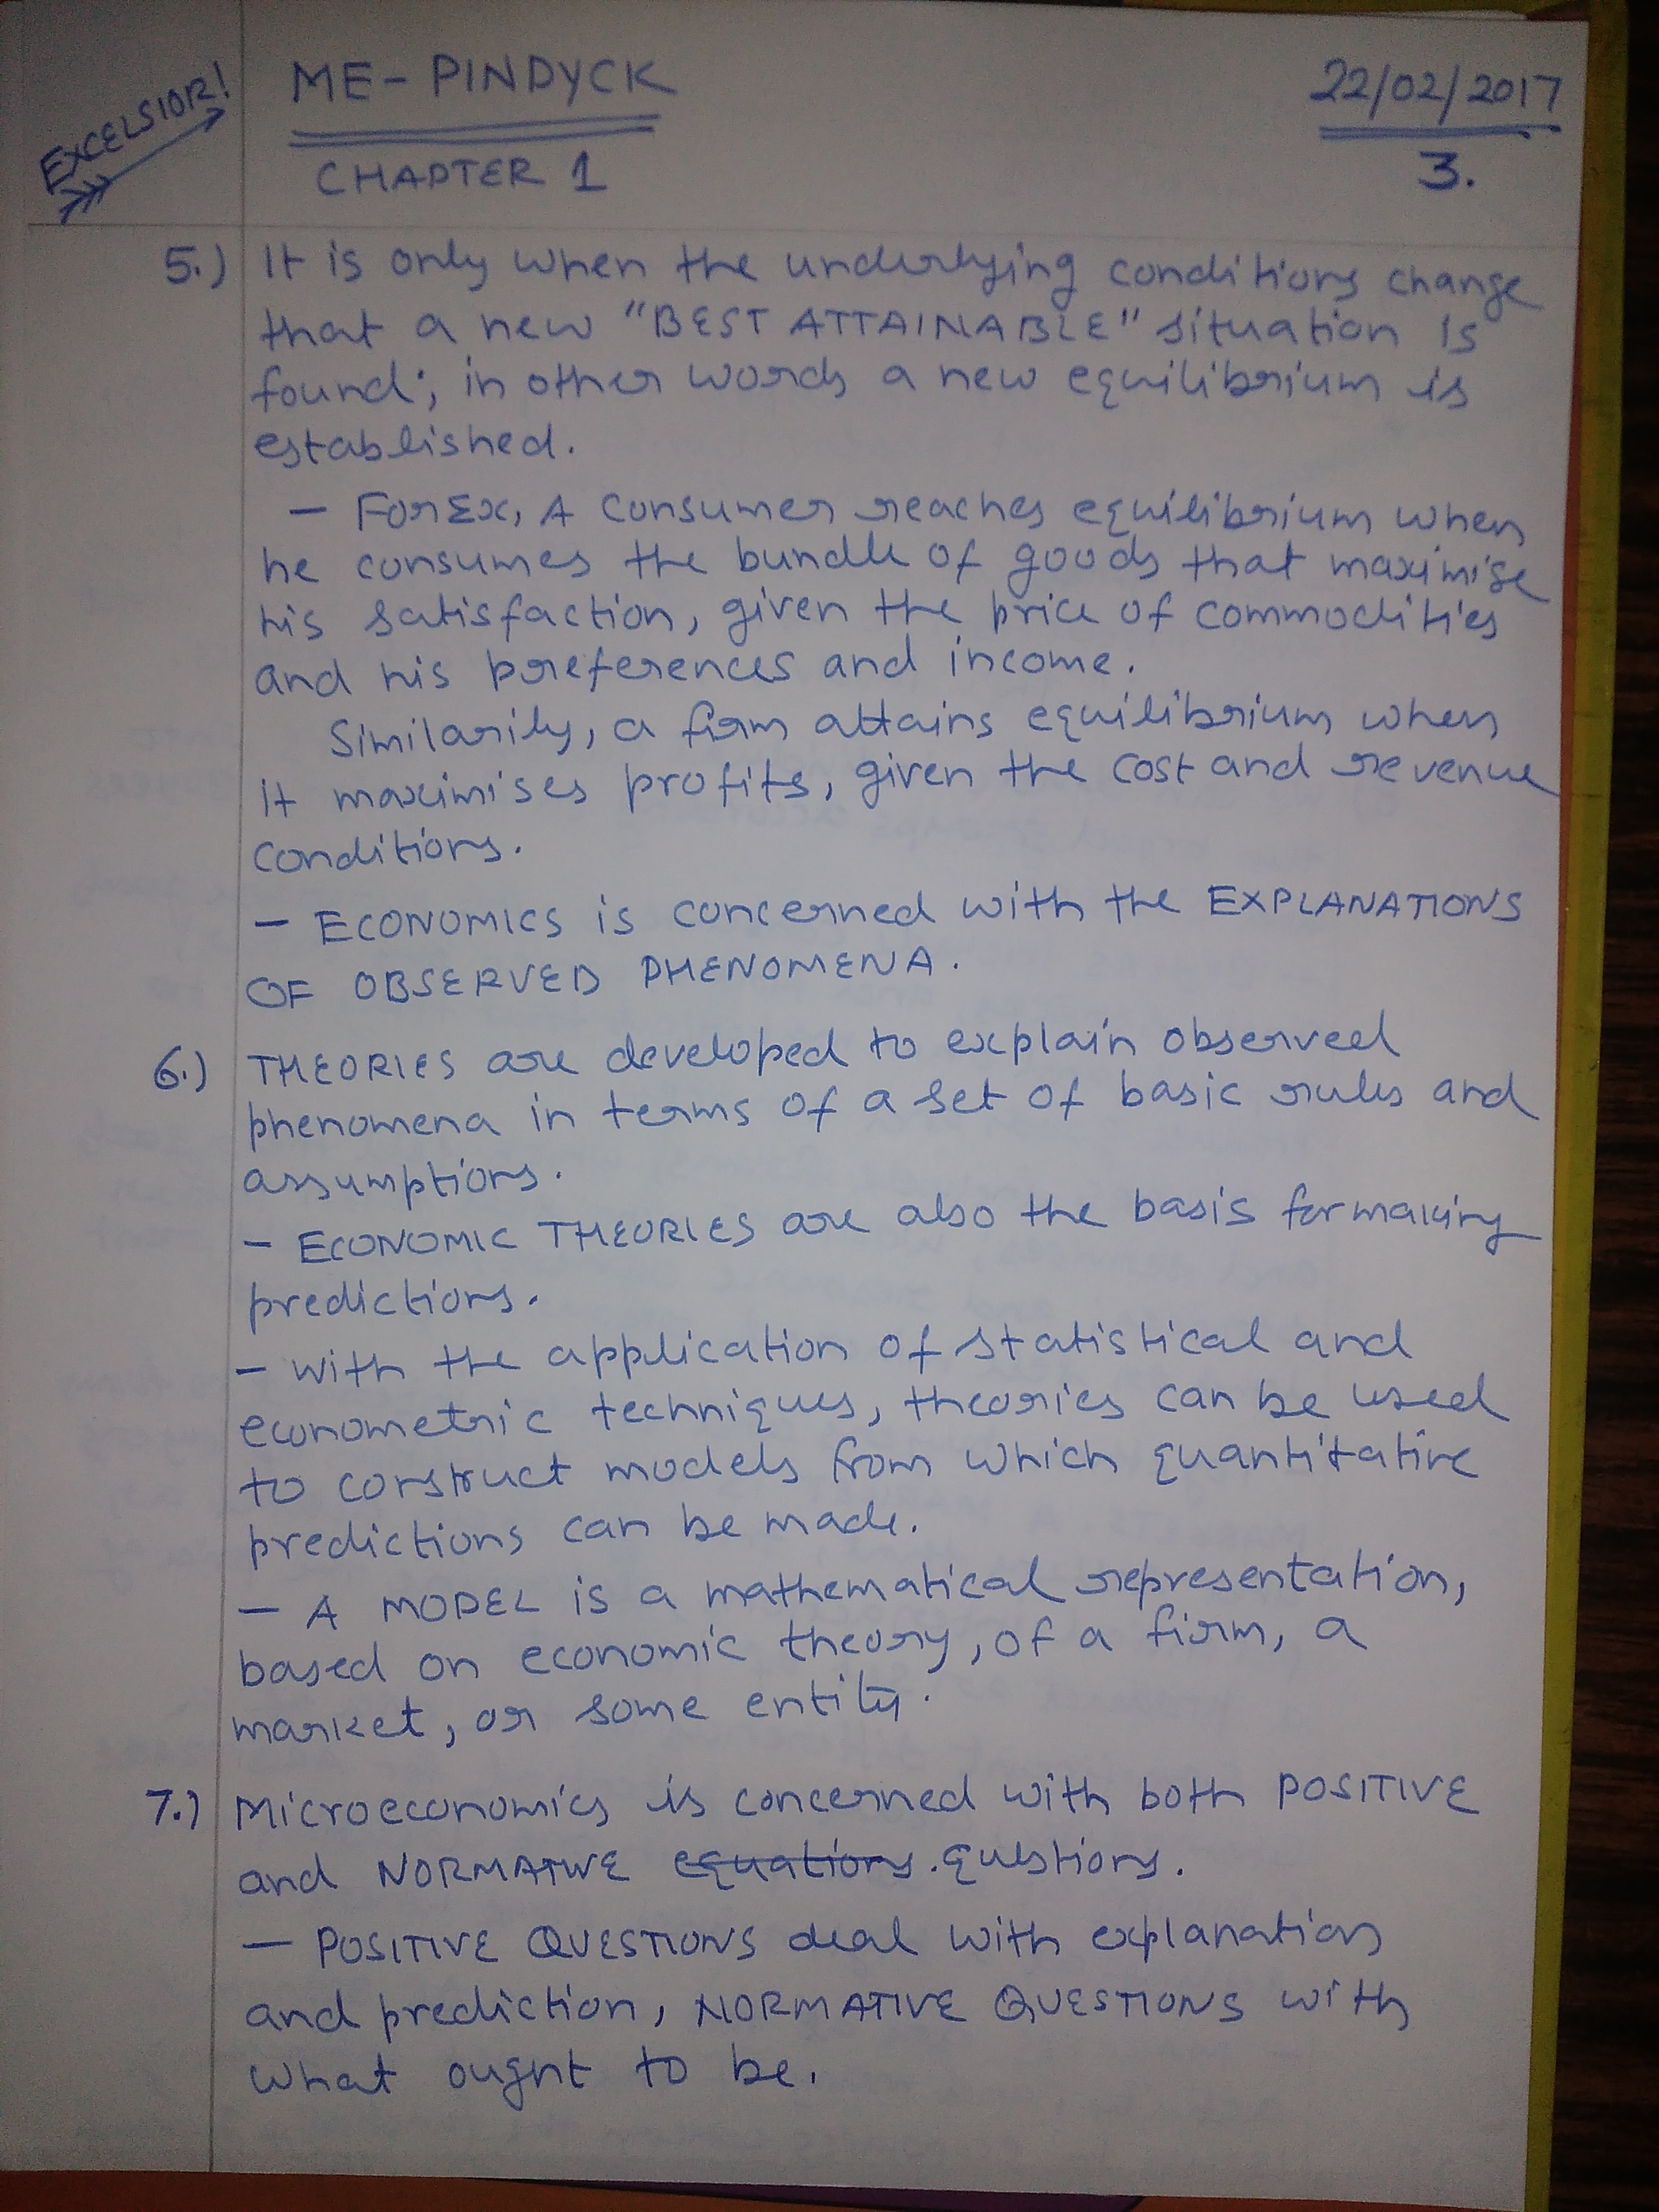 EXCELSIOR!
ME - PINDYCK
22/02/2017
CHAPTER 1
3.
5.) It is only when the underlying conditions change
that a new "BEST ATTAINABLE" situation is
found; in other words a new equilibrium is
established.
— For Ex, A consumer reaches equilibrium when
he consumes the bundle of goods that maximise
his satisfaction, given the price of commodities
and his preferences and income.
Similarily, a firm attains equilibrium when
it maximises profits, given the cost and revenue
conditions.
— ECONOMICS is concerned with the EXPLANATIONS
OF OBSERVED PHENOMENA.
6.) THEORIES are developed to explain observed
phenomena in terms of a set of basic rules and
assumptions.
— ECONOMIC THEORIES are also the basis for making
predictions.
— with the application of statistical and
econometric techniques, theories can be used
to construct models from which quantitative
predictions can be made.
— A MODEL is a mathematical representation,
based on economic theory, of a firm, a
market, or some entity.
7.) Microeconomics is concerned with both POSITIVE
and NORMATIVE equations. questions.
— POSITIVE QUESTIONS deal with explanation
and prediction, NORMATIVE QUESTIONS with
what ought to be.